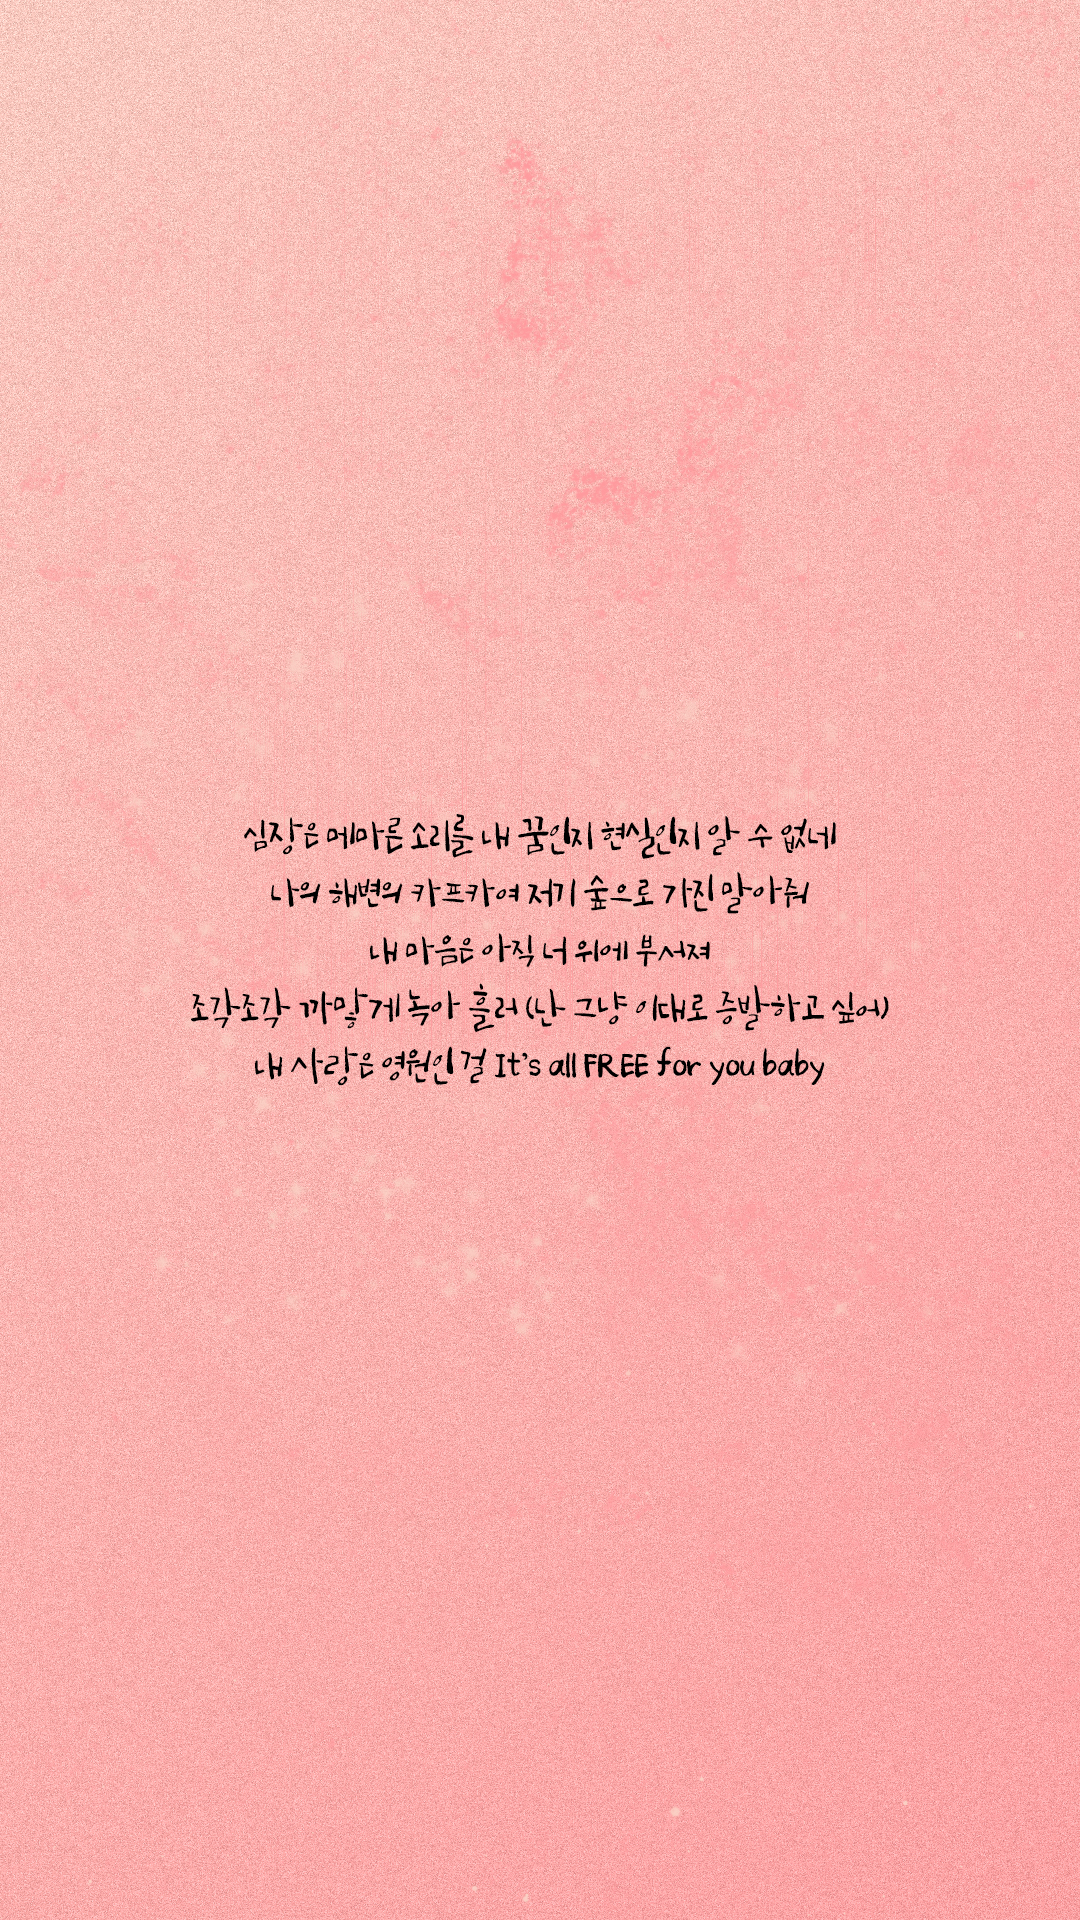 심장은 메마른 소리를 내 꿈인지 현실인지 알 수 없네
나의 해변의 카프카여 저기 숲으로 가진 말아줘
내 마음은 아직 너 위에 부서져
조각조각 까맣게 녹아 흘러 (난 그냥 이대로 증발하고 싶어)
내 사랑은 영원인 걸 It's all FREE for you baby